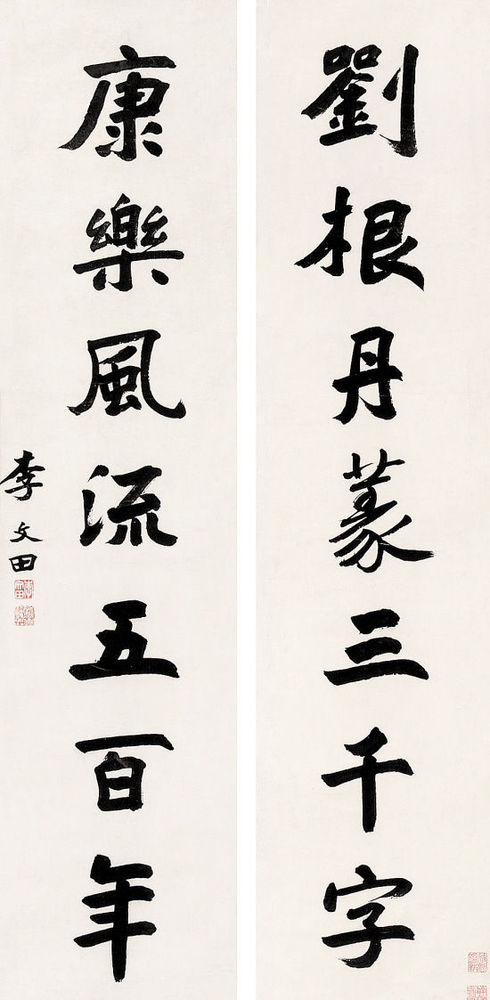 劉根丹篆三千字
康樂風流五百年
李文田